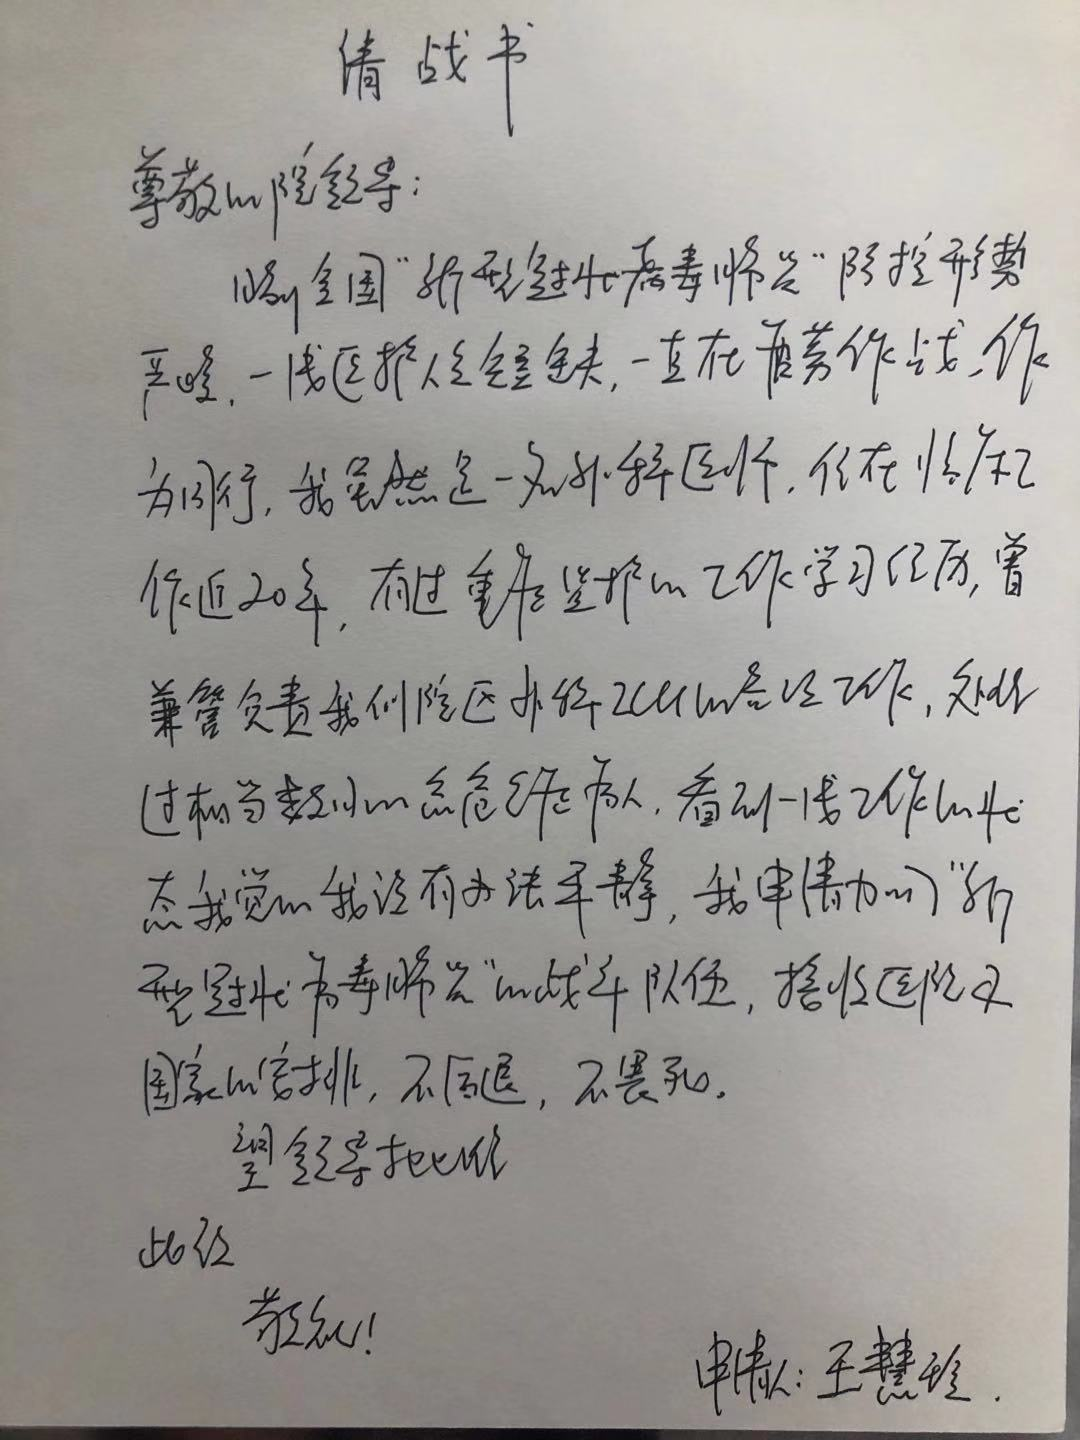 请战书
尊敬的院领导：
时值全国“新型冠状病毒肺炎”防控形势
严峻，一线医护人员短缺，一直在奋勇作战，作
为同行，我虽然是一名外科医师，但在临床工
作近20年，有过重症监护的工作学习经历，曾
兼管负责我们院区外科ICU的各项工作，处理
过相当数量的急危重症病人，看到一线工作的状
态我觉的我没有办法平静，我申请加入“新
型冠状病毒肺炎”的战斗队伍，接收医院及
国家的安排，不后退，不畏死。
望领导批准
此致
敬礼！
申请人：王慧珍.